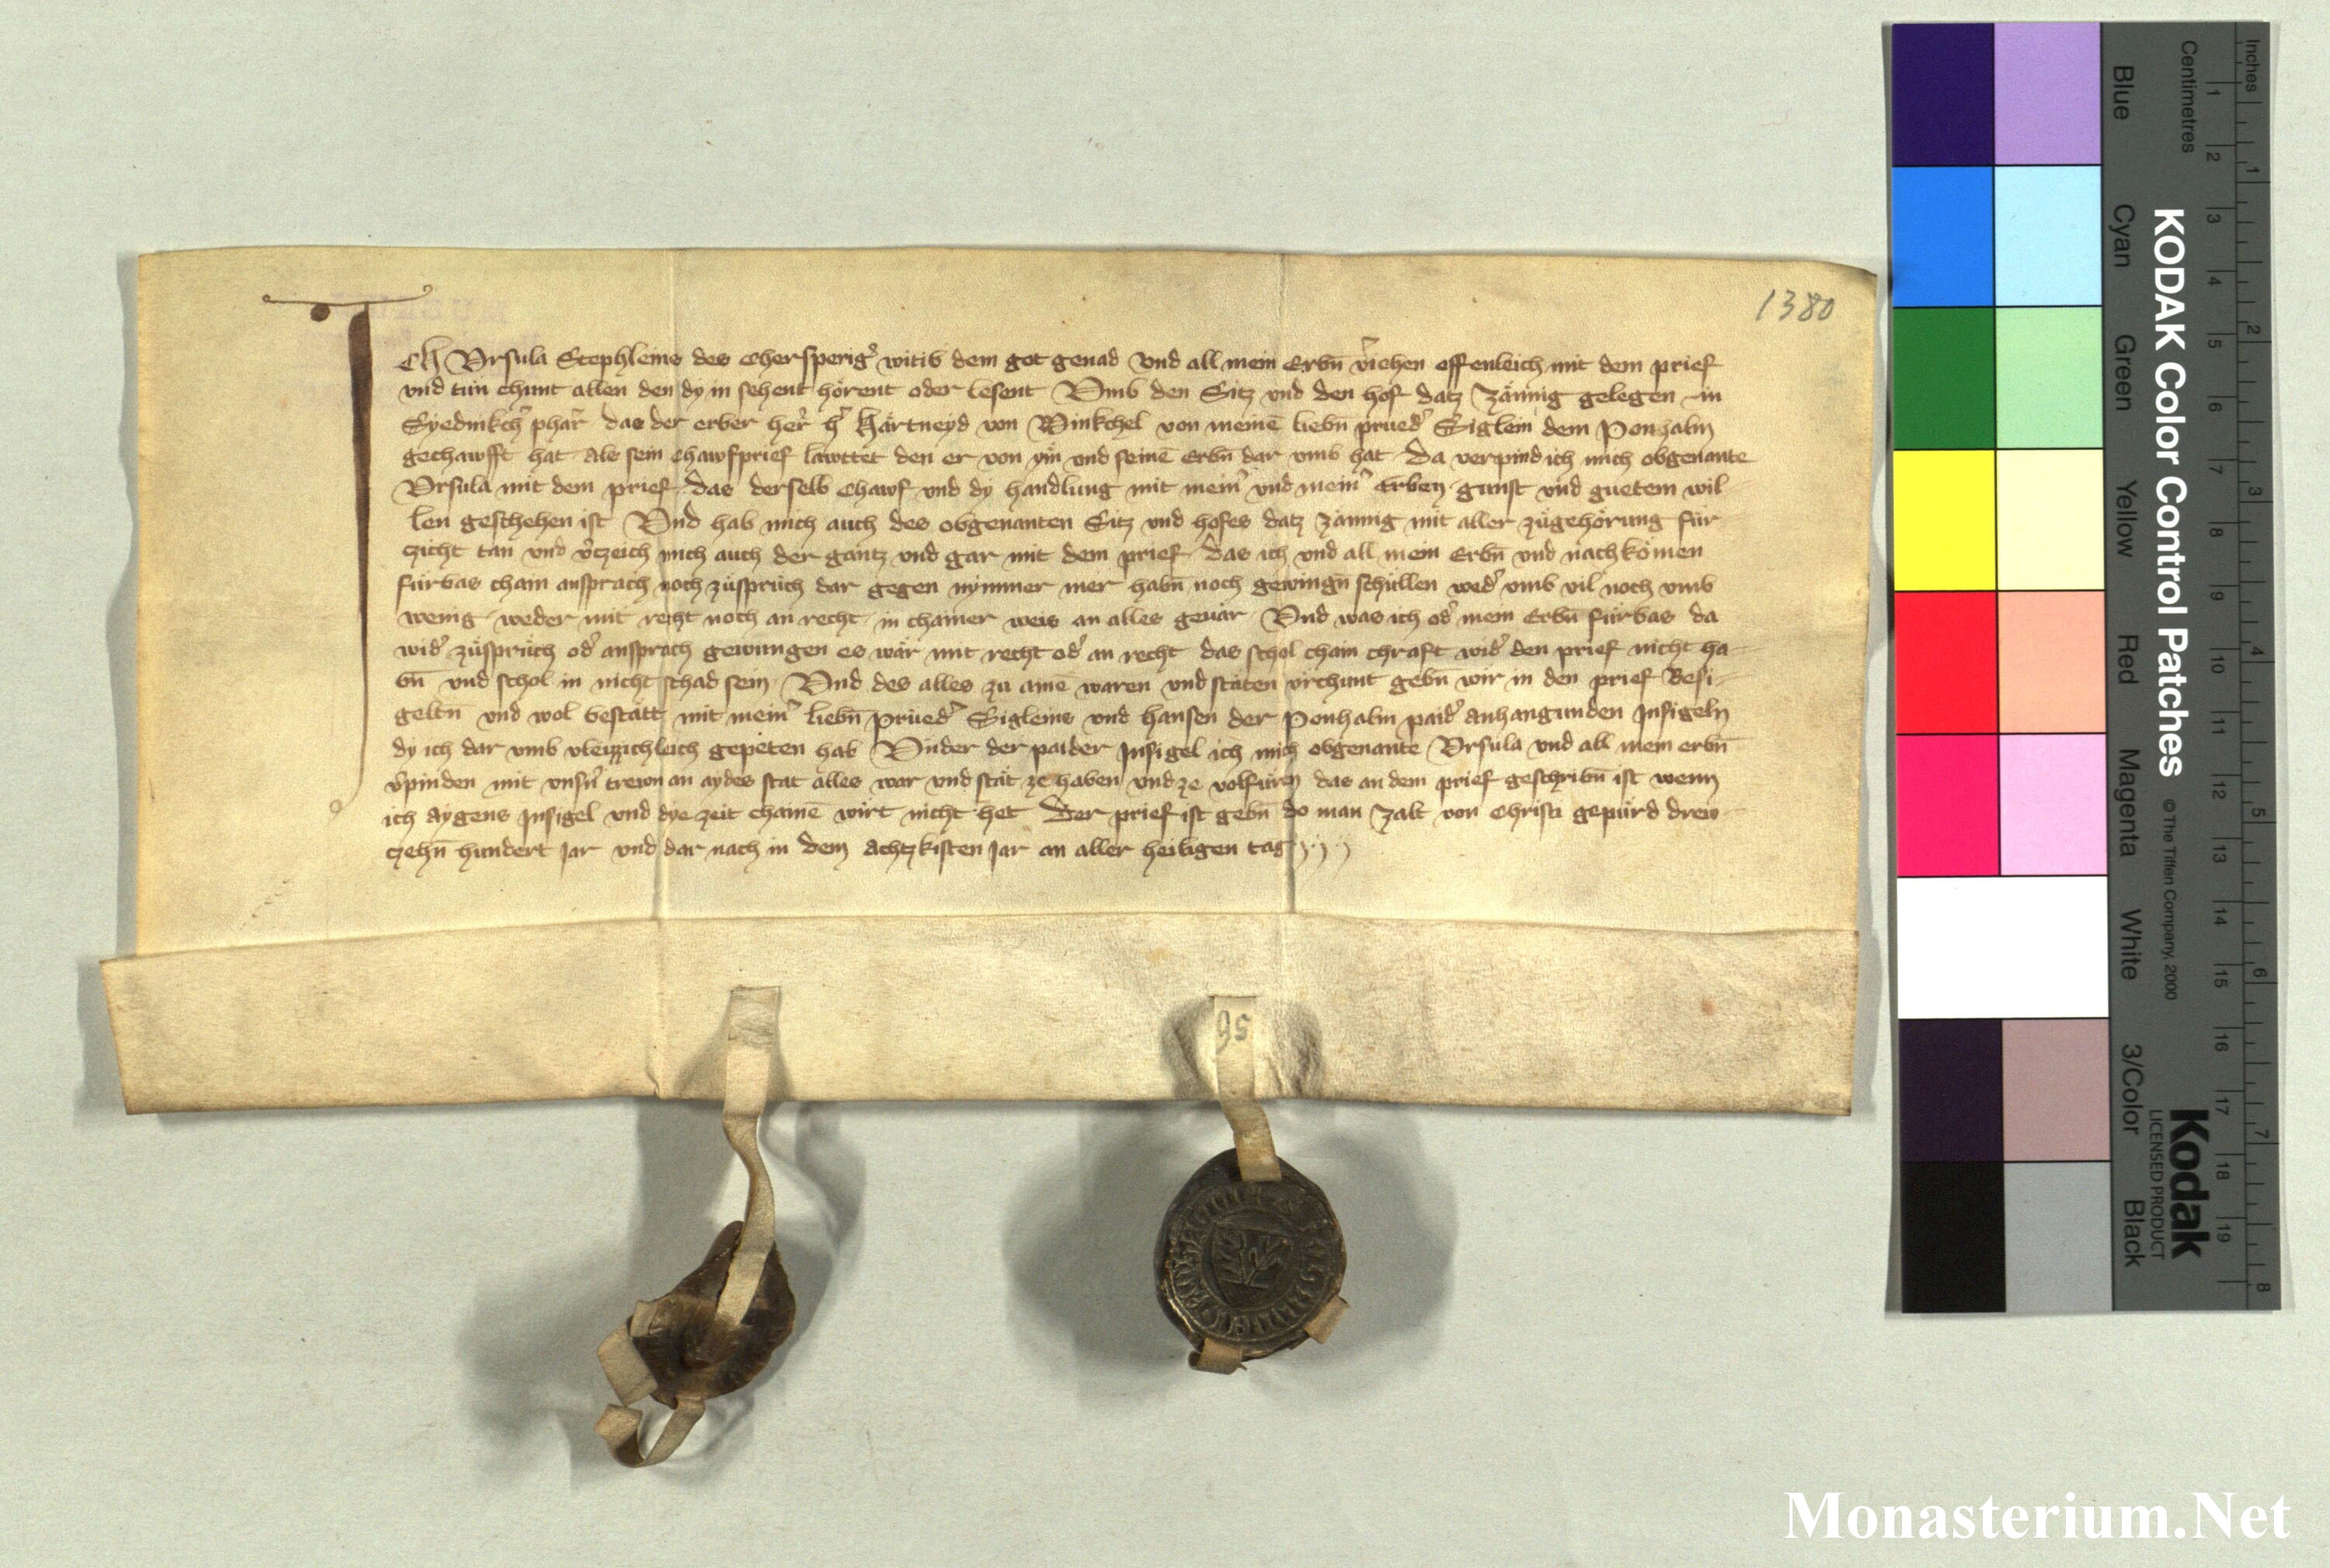 1380
Ich Vrsula Stephleins des Chersperigˀ witib dem got genad vnd all mein Erbn̄ vˀiehen offenleich mit dem prief
vnd tün chunt allen den dy in sehent hörent oder lesent Vmb den Sitz vnd den hof datz Zäming gelegen in
pharˀ das der erber herˀ hˀ Härtneyd von Winkchel von meinē liebn̄ pruedˀ Siglein dem Ponhalm
gechawfft hat als sein chawfprief lawttet den er von ym vnd seinē Erbn̄ dar vmb hat Da verpind ich mich obgenante
Vrsula mit dem prief das derselb chawf vnd dy handlung mit meinˀ vnd meinˀ Erben gunst vnd guetem wil-
len geschehen ist Vnd hab mich auch des obgenanten Sitz vnd hofes datz Zäming mit aller zügehörung für-
czicht tan vnd vˀczeich mich auch der gantz vnd gar mit dem prief das ich vnd all mein Erbn̄ vnd nachkömen
fürbas chain ansprach noch züsprüch dar gegen nymmer mer habn̄ noch gewingn̄ schüllen wedˀ vmb vil noch vmb
wenig weder mit recht noch an recht in chainer weis an alles geuär Vnd was ich odˀ mein Erbn̄ fürbas da
widˀ züsprüch odˀ ansprach gewungen es wär mit recht odˀ an recht das schol chain chraft widˀ den prief nicht ha-
bn̄ vnd schol in nicht schad sein Vnd des alles zu ainē waren vnd stäten vrchunt gebn̄ wir in den prief Besi-
geltn̄ vnd wol bestätt mit meinˀ liebn̄ prüedˀ Sigleins vnd Hansen der Ponhalm paidˀ anhangunden Insigeln
dy ich dar vmb vleizzichleich gepeten hab Vnder der paider Insigel ich mich obgenante Vrsula vnd all mein erbn̄
vˀpinden mit vnsˀn trewn an aydes stat alles war vnd stät ze haben vnd ze volfüren das an dem prief geschribn̄ ist wenn
ich aygens Insigel vnd dye zeit chainē wirt nicht het Der prief ist gebn̄ do man zalt von Christi gepürd drew-
czehn̄ hundert Jar vnd dar nach in dem Achtzkisten Jar an aller heiligen tag
56
Inches
Centimetres
KODAK Color Control Patches
© The Tiffen Company, 2000
Kodak
LICENSED PRODUCT
Blue Cyan Green Yellow Red Magenta White 3/Color Black
1 2 3 4 5 6 7 8 9 10 11 12 13 14 15 16 17 18 19
1 2 3 4 5 6 7 8
Monasterium.Net